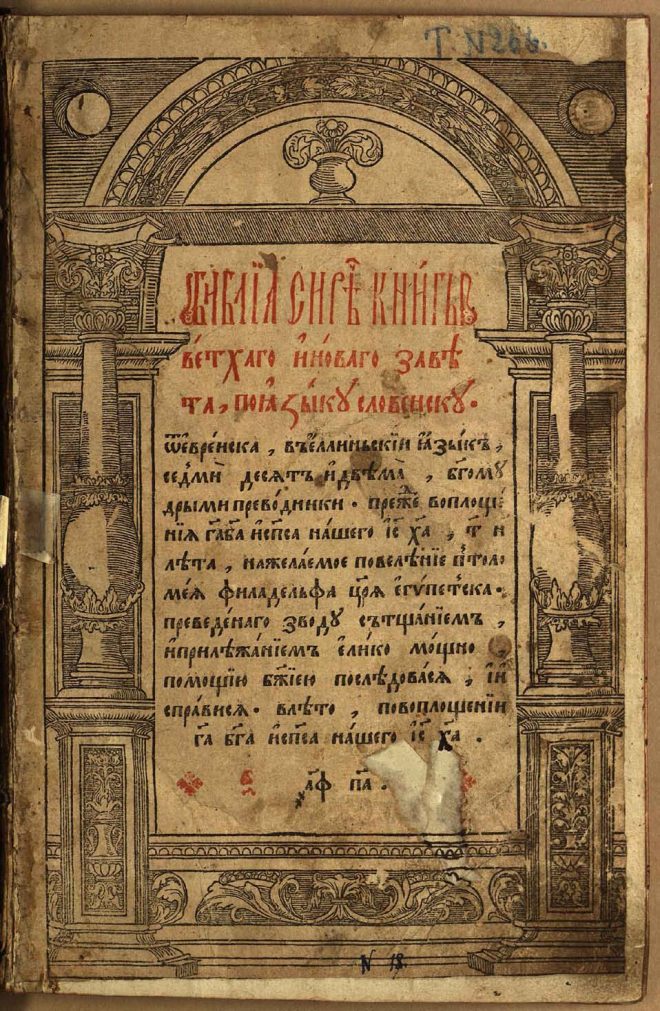 T. N 266.
Библїѧ сирѣ҃ кни́гы
ве́тхаго и҆но́ваго завѣ
та, поꙗ҆зы́кꙋ словенскꙋ.
ѿевре́иска, въе́ллиньскїи ꙗ҆зы́къ,
се́дмъ десѧтъ и҆двѣма̀, бг҃омꙋ
дрыми прево́дники. пре́жⷣе воплоще́
нїѧ гаⷭ҇ба҃ и҆сп҃са на́шего іс҃ ха҃, т҃ и
лѣта, нажела́емое повелѣ́нїе пт҃оло
ме́ѧ филаде́льфа црⷭ҇ѧ є҆гѵ́петска.
преведе́наго зводꙋ сътща́нїемъ,
и҆прилѣжа́нїемъ є҆ли́ко мо́щно,
помо́щїю бж҃їею послѣ́довасѧ, и҆
спра́висѧ. влѣ́то, поволоще́нїи
га҃ бг҃а и҆сп҃са на́шего іс҃ ха҃.
҂аф҃ па҃.
N 18.